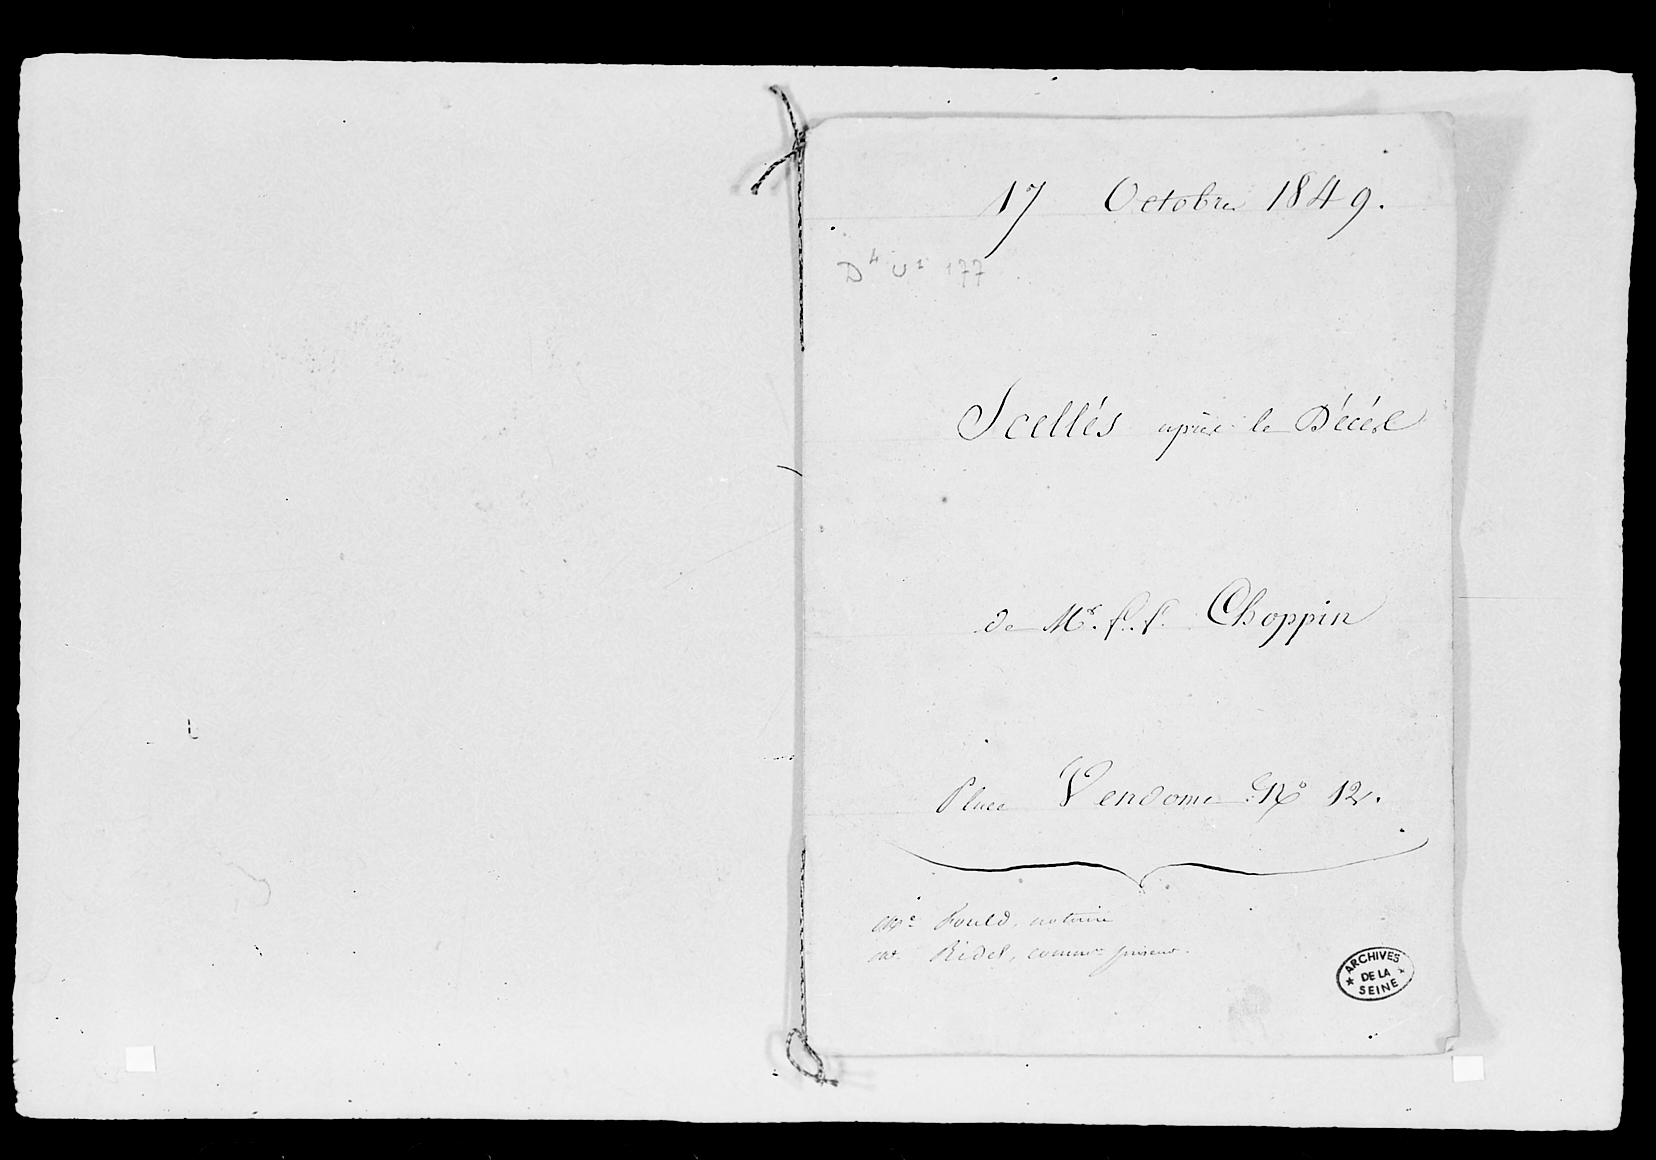 17 Octobre 1849.
D⁴ U¹ 177
Scellés après le Décès
de Mr. f.f. Choppin
Place Vendome No 12.
Me Fould, notaire
Me Ridel, commre priseur.
ARCHIVES
DE LA
SEINE